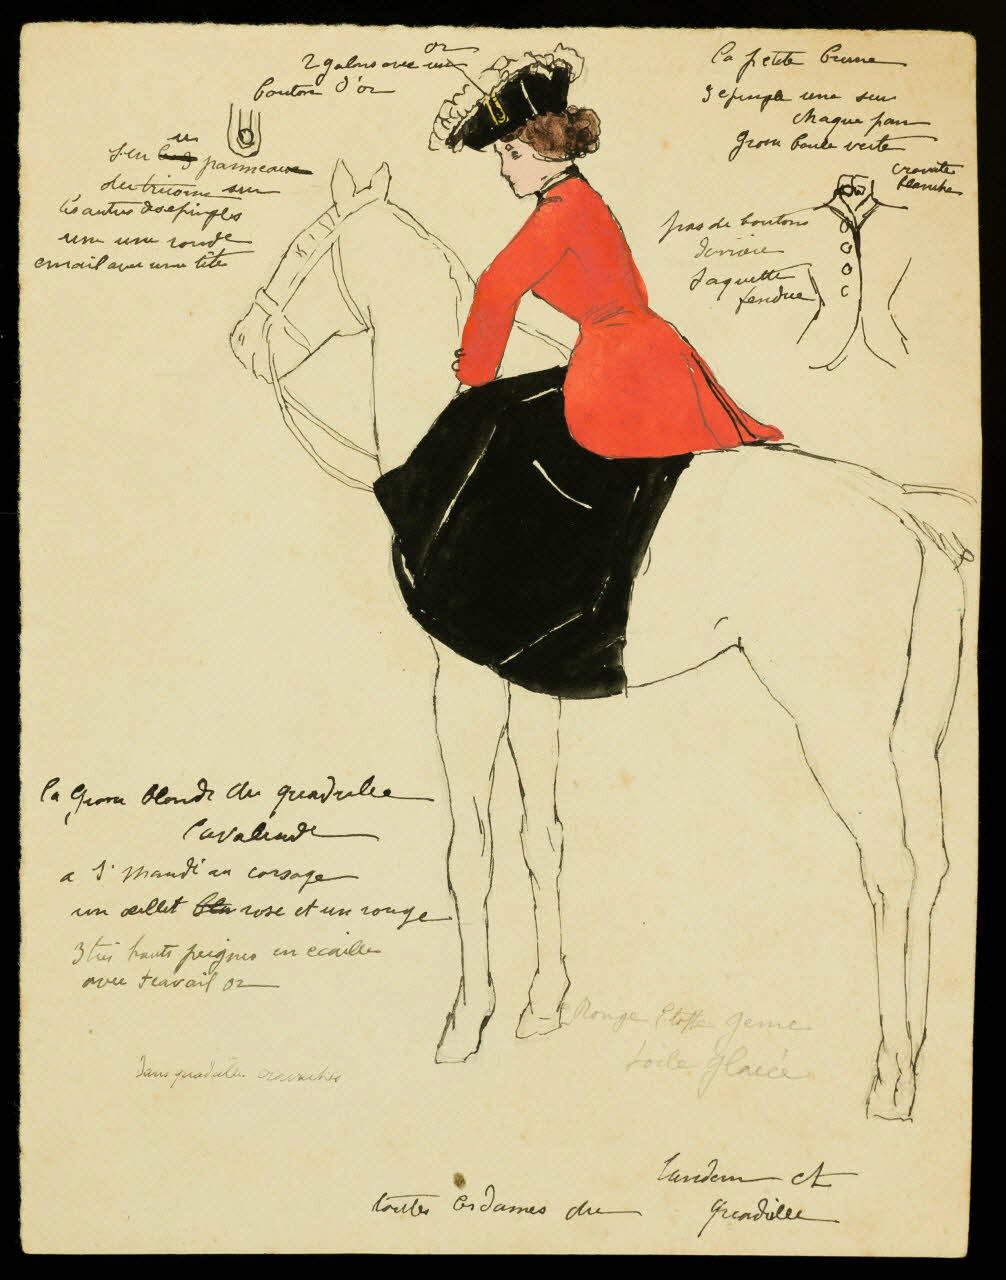 or
2 galons avec un
bouton d'or
un
sur panneaux
du tricorne sur
les autres des epingles
une ronde
email avec une tête
La petite brune
3 epingle une sur
chaque pan
grosse boule verte
cravate
blanche
pas de boutons
derrière
Jaquette
fendue
la grosse blonde du quadrille
cavalcade
a au corsage
un œillet rose et un rouge
3 très hauts peignes en ecaille
avec travail or
dans quadrille cravaches
Rouge Etoffe genre
toile glacée
tandem et
toutes les dames du quadrille